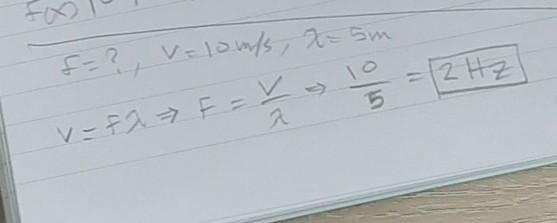 f(x)
f=?, V=10m/s, λ=5m
V=fλ ⇒ F = V/λ ⇒ 10/5 = 2Hz